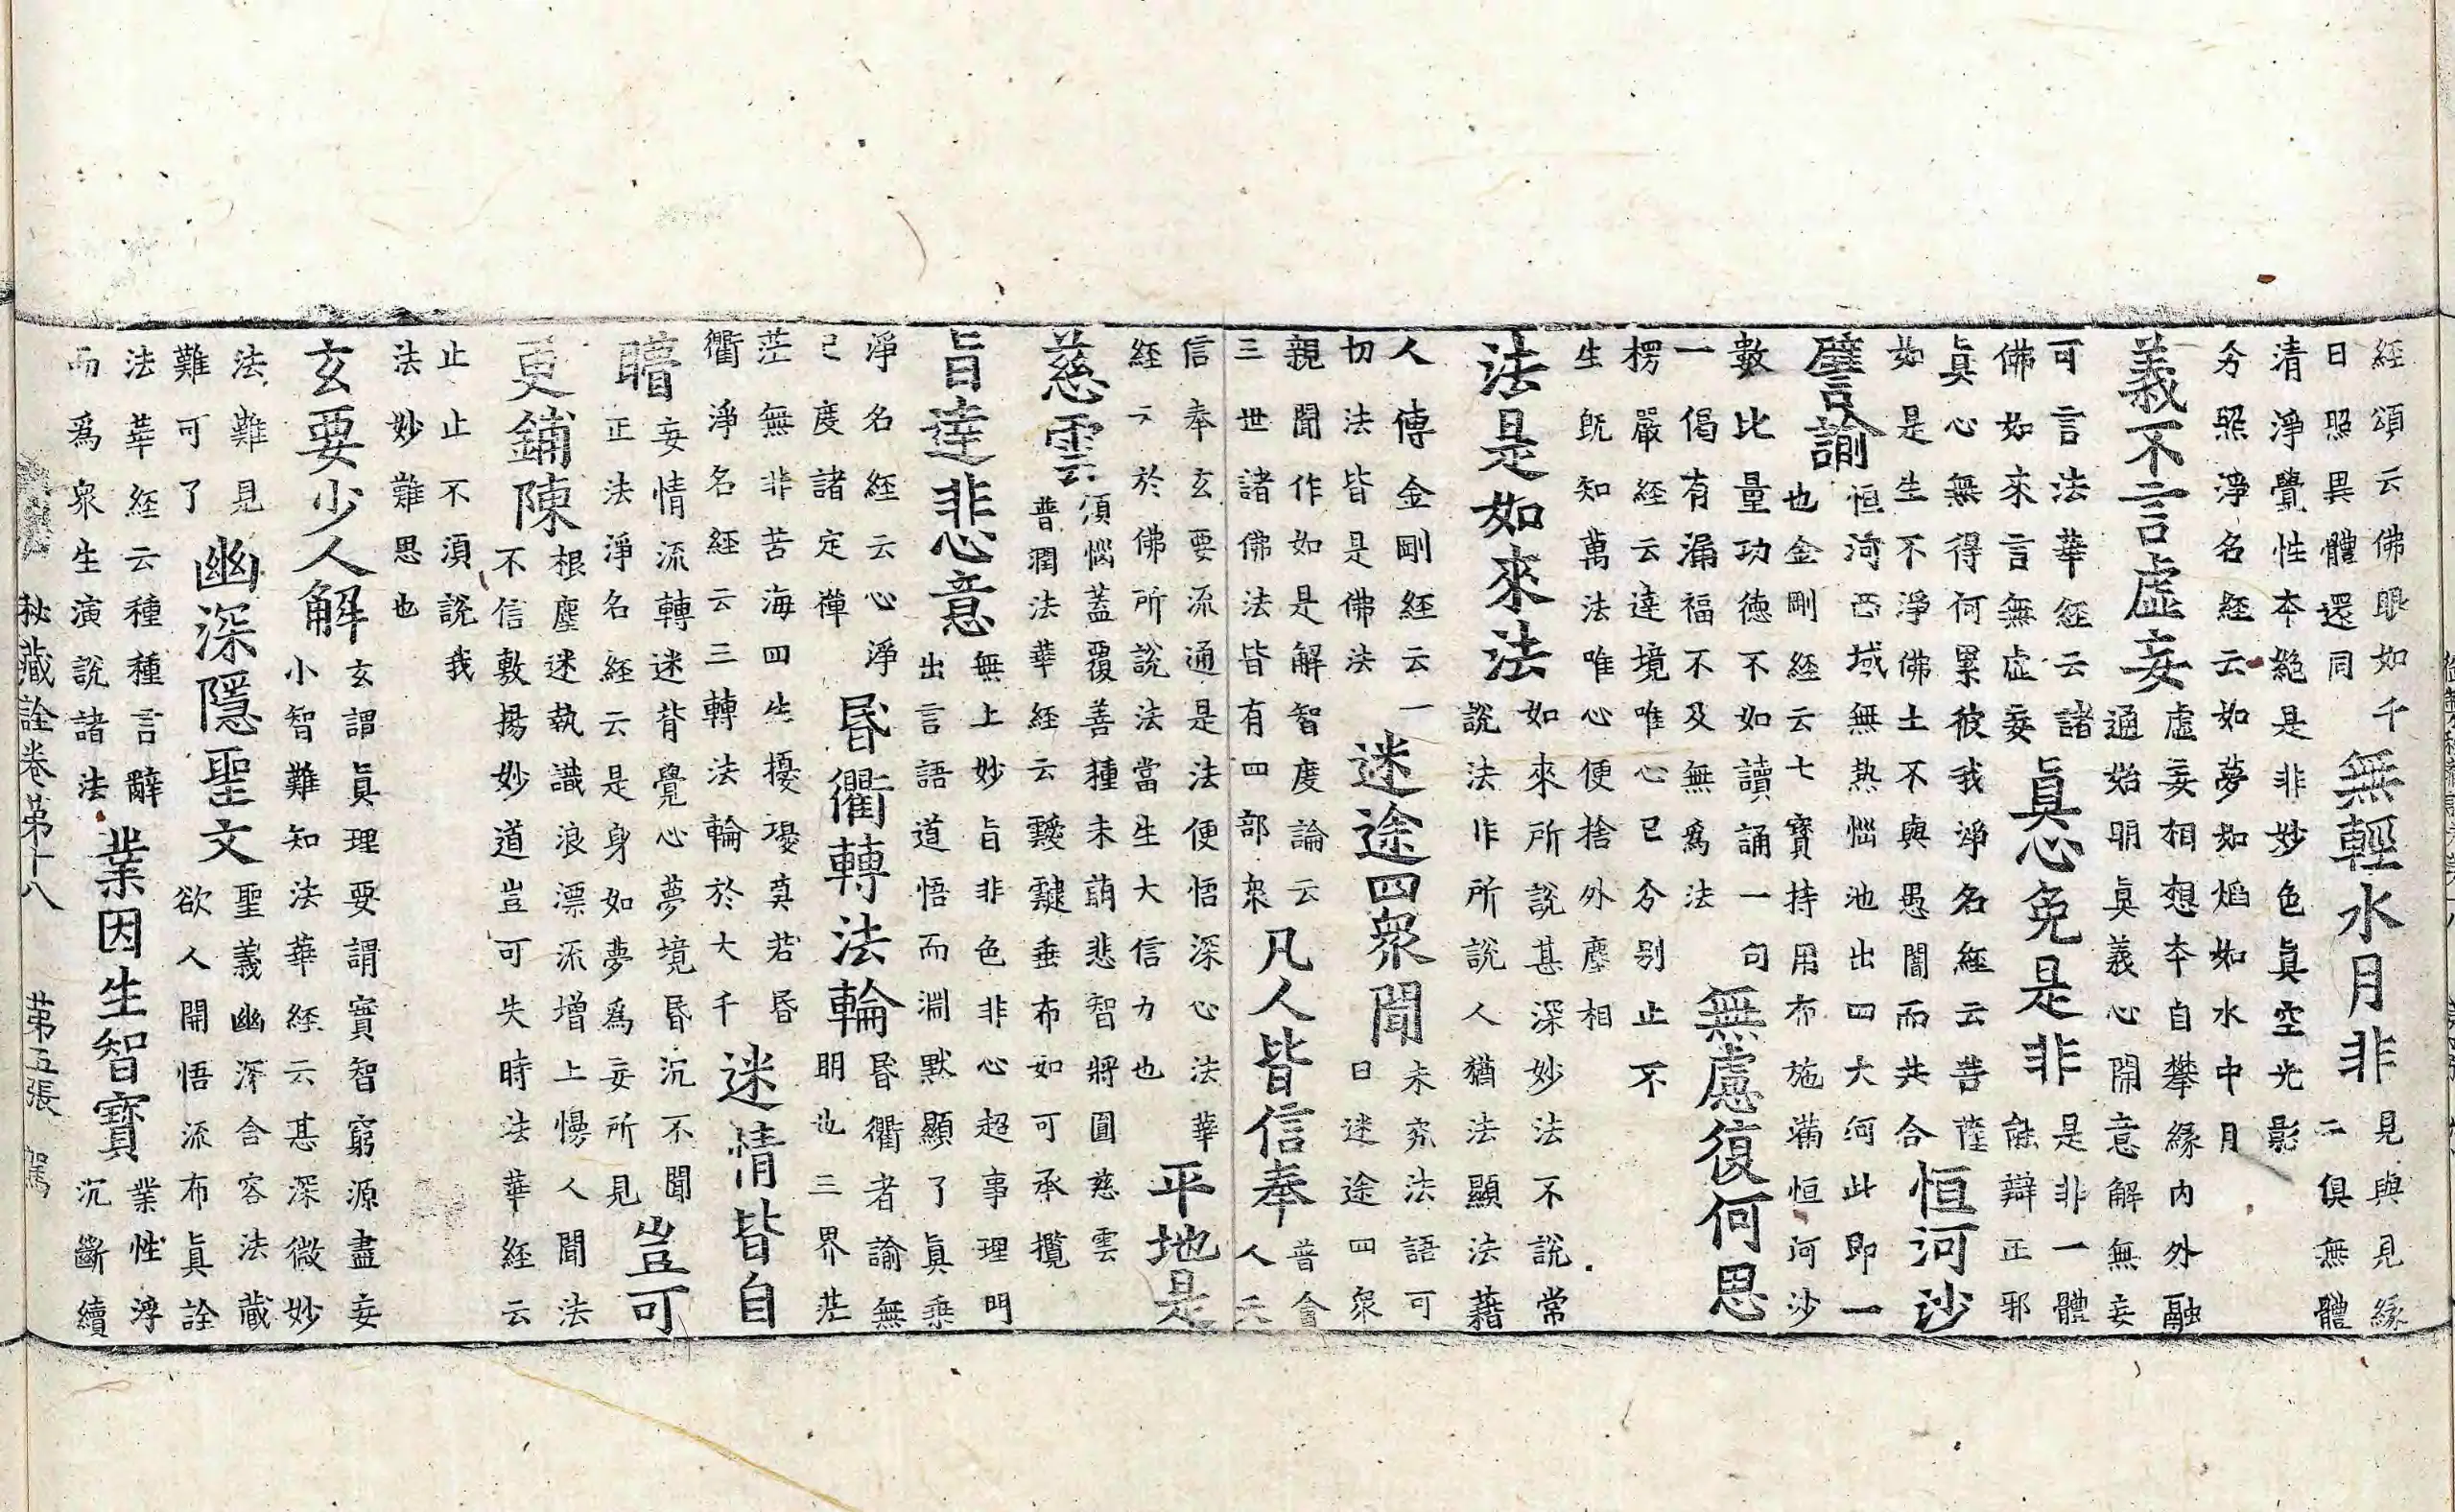 經頌云佛眼如千
日照異體還同
無輕水月非
見與見緣
二俱無體
清淨覺性本絕是非妙色眞空光影
分照淨名經云如夢如焰如水中月
義不言虛妄
虛妄相想本自攀緣內外融
通始明眞義心開意解無妄
可言法華經云諸
佛如來言無虛妄
眞心免是非
是非一體
能辯正邪
眞心無得何累彼我淨名經云菩薩
如是生不淨佛土不與愚闇而共合
恒河沙
譬諭
恒河西域無熱惱池出四大河此即一
也金剛經云七寶持用布施滿恒河沙
數比量功德不如讀誦一句
一偈有漏福不及無爲法
無慮復何思
楞嚴經云達境唯心已分別止不
生旣知萬法唯心便捨外塵相
法是如來法
如來所說甚深妙法不說常
說法作所說人猶法顯法藉
人傳金剛經云一
切法皆是佛法
迷途四衆聞
未究法語可
曰迷途四衆
親聞作如是解智度論云
三世諸佛法皆有四部衆
凡人皆信奉
普會
人天
信奉玄要流通是法便悟深心法華
經云於佛所說法當生大信力也
平地是
慈雲
須惱蓋覆善種未萌悲智將圓慈雲
普潤法華經云靉靆垂布如可承攬
旨達非心意
無上妙旨非色非心超事理門
出言語道悟而淵默顯了眞乘
淨名經云心淨
已度諸定禪
昏衢轉法輪
昏衢者諭無
明也三界茫
茫無非苦海四生擾擾莫若昏
衢淨名經云三轉法輪於大千
迷情皆自
暗
妄情流轉迷背覺心夢境昏沉不聞
正法淨名經云是身如夢爲妄所見
豈可
更鋪陳
根塵迷執識浪漂流增上慢人聞法
不信敷揚妙道豈可失時法華經云
止止不須說我
法妙難思也
玄要少人解
玄謂眞理要謂實智窮源盡妄
小智難知法華經云甚深微妙
法難見
難可了
幽深隱聖文
聖義幽深含容法藏
欲人開悟流布眞詮
法華經云種種言辭
而爲衆生演說諸法
業因生智寶
業性淳
沉斷續
秘藏詮卷苐十八 苐五張 駕